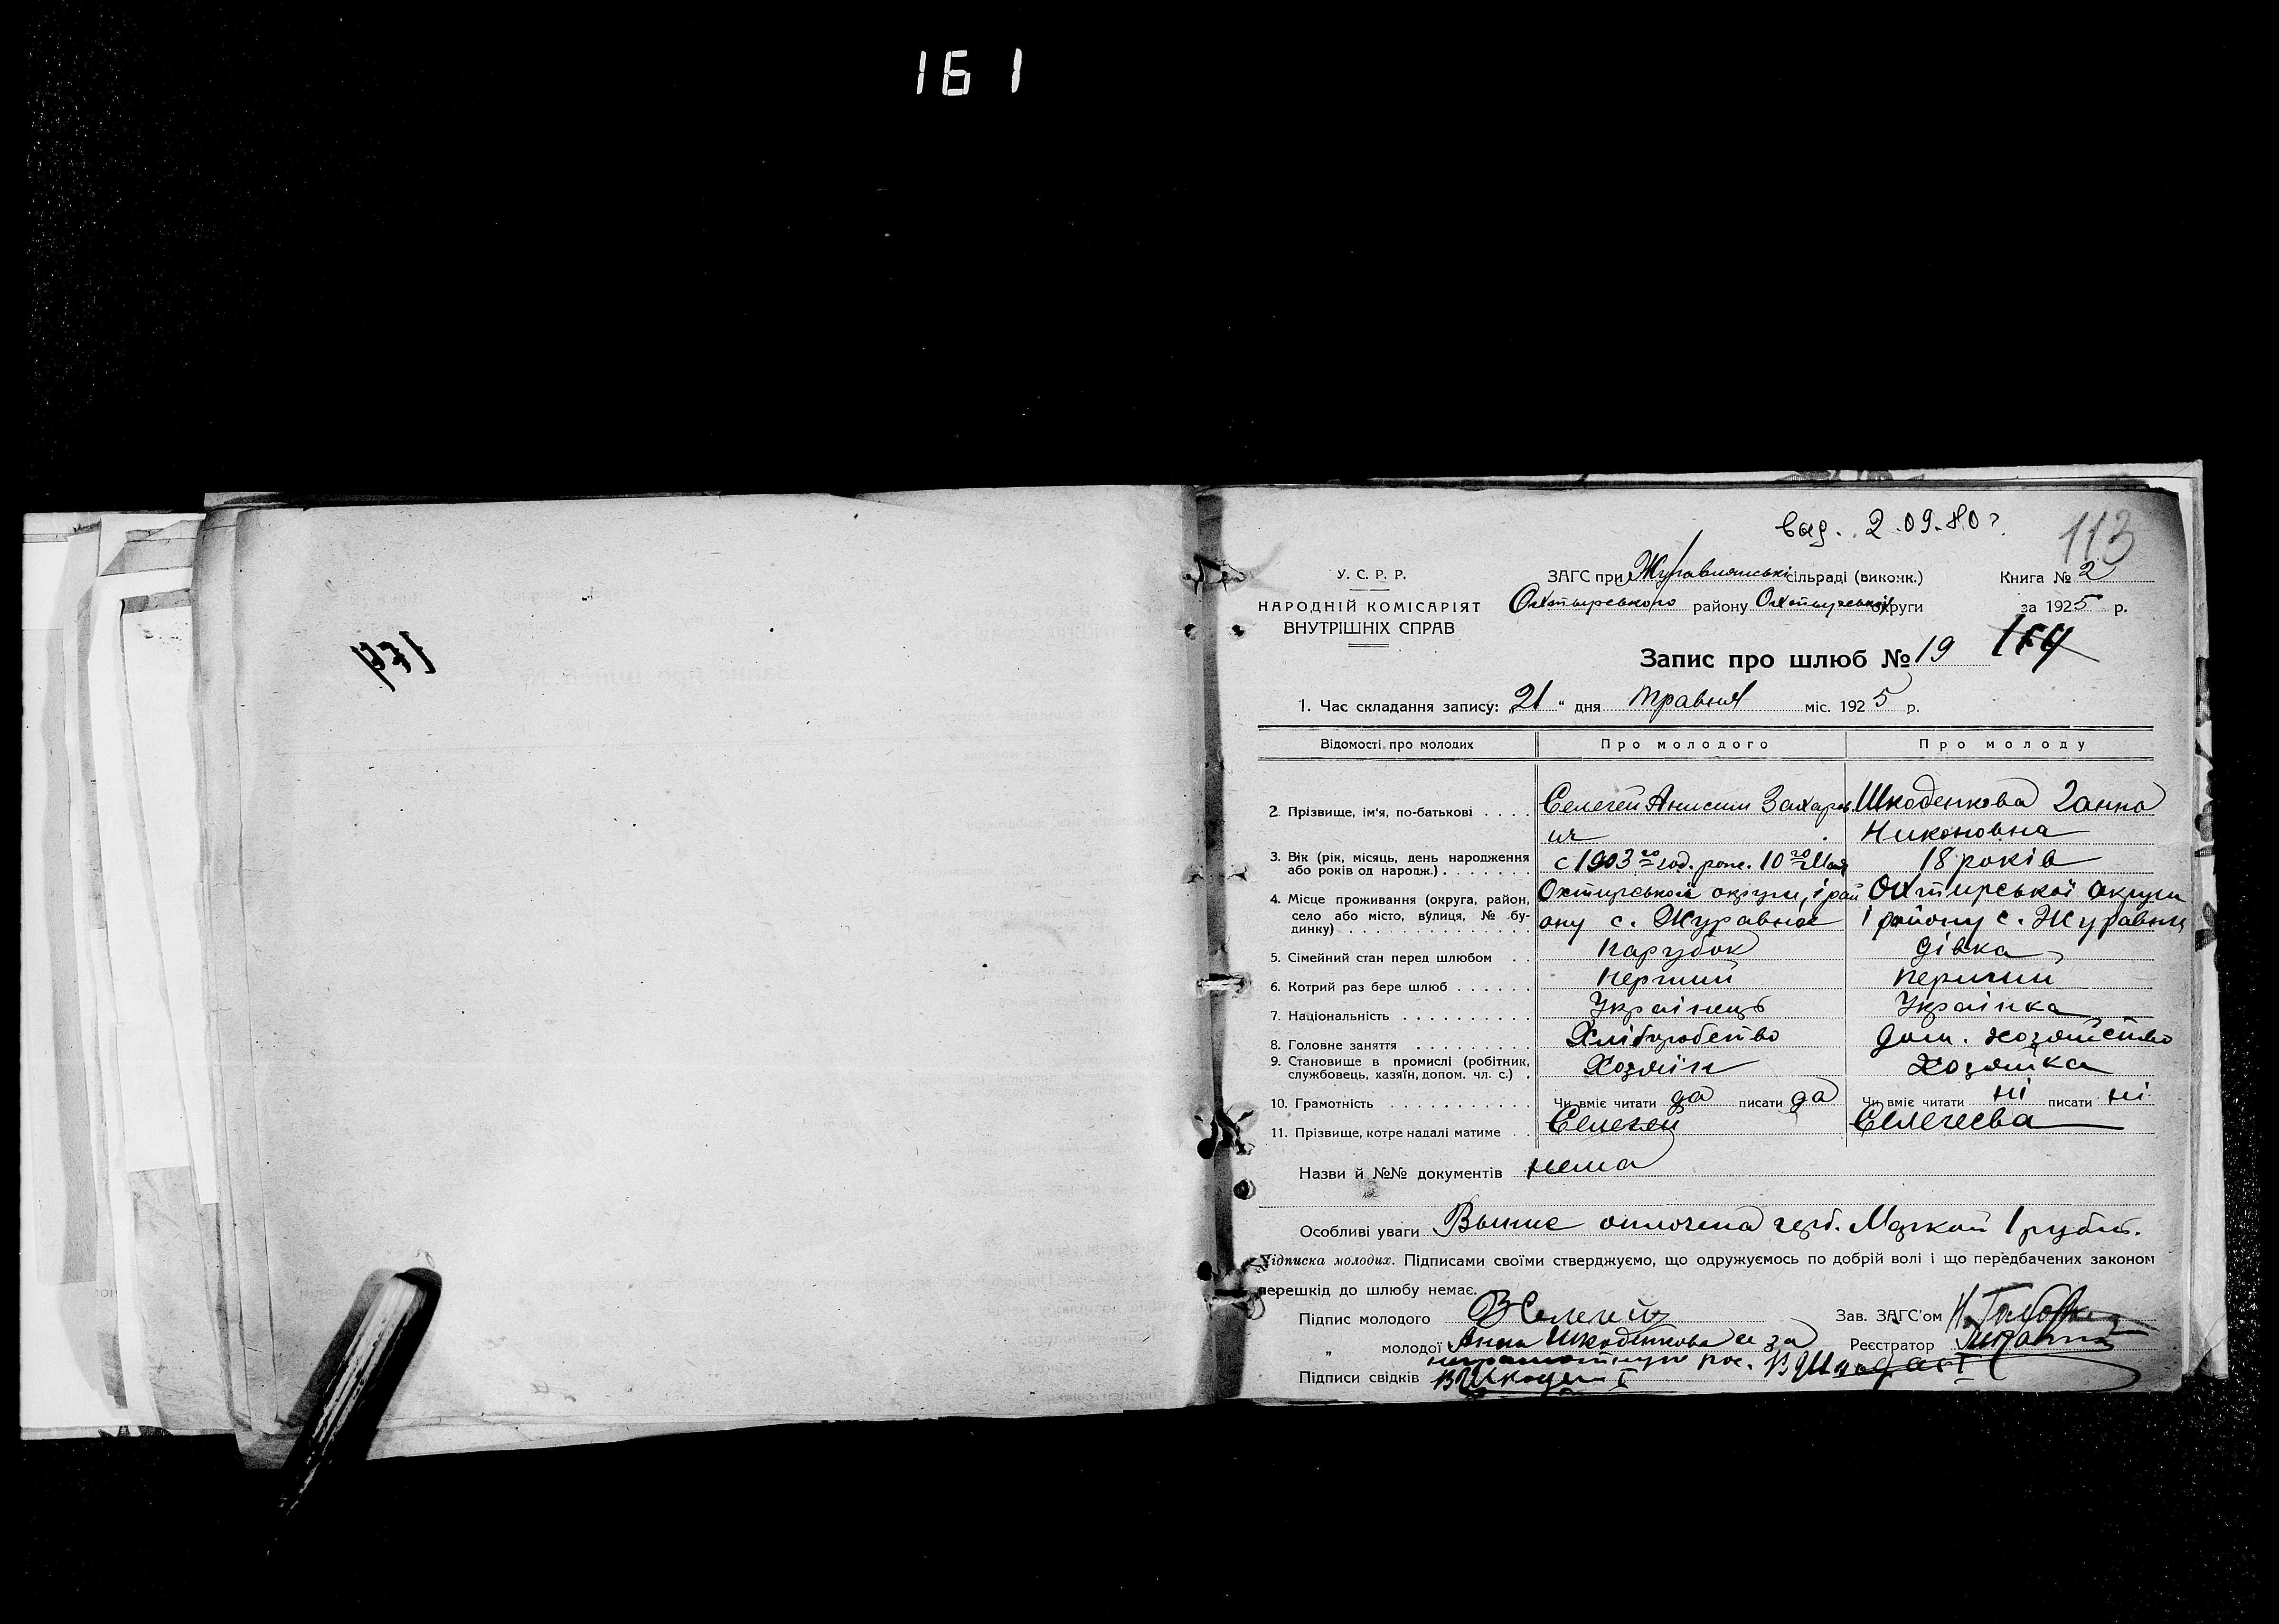 161
вид. 2.09.80 г.
113
У. С. Р. Р.
НАРОДНІЙ КОМІСАРІЯТ
ВНУТРІШНІХ СПРАВ
ЗАГС при Журавлянські сільраді (виконк.)
Охтырського району Охтырської округи
Книга № 2
за 1925 р.
Запис про шлюб № 19
1. Час складання запису: „21“ дня травня міс. 1925 р.
Відомості про молодих Про молодого Про молоду
2 Прізвище, ім'я, по-батькові . . . . Селегей Анисим Захаров Шкоденкова Ганна
ич Никоновна
3. Вік (рік, місяць, день народження
або років од народж.) . . . . . . . с 1903 го год. рож. 10 го Мая 18 років
4. Місце проживання (округа, район,
село або місто, вулиця, № бу-
динку) . . . . . . . . . . . . . . . Охтирськой округи, і рай
ону с. Журавне
Охтирської округи
і району с. Журавни
5. Сімейний стан перед шлюбом . . Парубок дівка
6. Котрий раз бере шлюб . . . . . . Перший перший
7. Національність . . . . . . . . . . Українець Українка
8. Головне заняття . . . . . . . Хліборобство дом. хозяйство
9. Становище в промислі (робітник,
службовець, хазяїн, допом. чл. с.) . Хозяїн Хозяйка
10. Грамотність . . . . . . . . . . . Чи вміє читати да писати да Чи вміє читати ні писати ні
11. Прізвище, котре надалі матиме . . Селегей Селегеева
Назви й №№ документів нема
Особливі уваги оплочена герб. Маркой 1 рубль.
Підписка молодих. Підписами своїми стверджуємо, що одружуємось по добрій волі і що передбачених законом
перешкід до шлюбу немає.
Підпис молодого Селегей Зав. ЗАГС'ом
„ молодої Анна Шкоденкова а за Реєстратор
неграмотную рос.
Підписи свідків